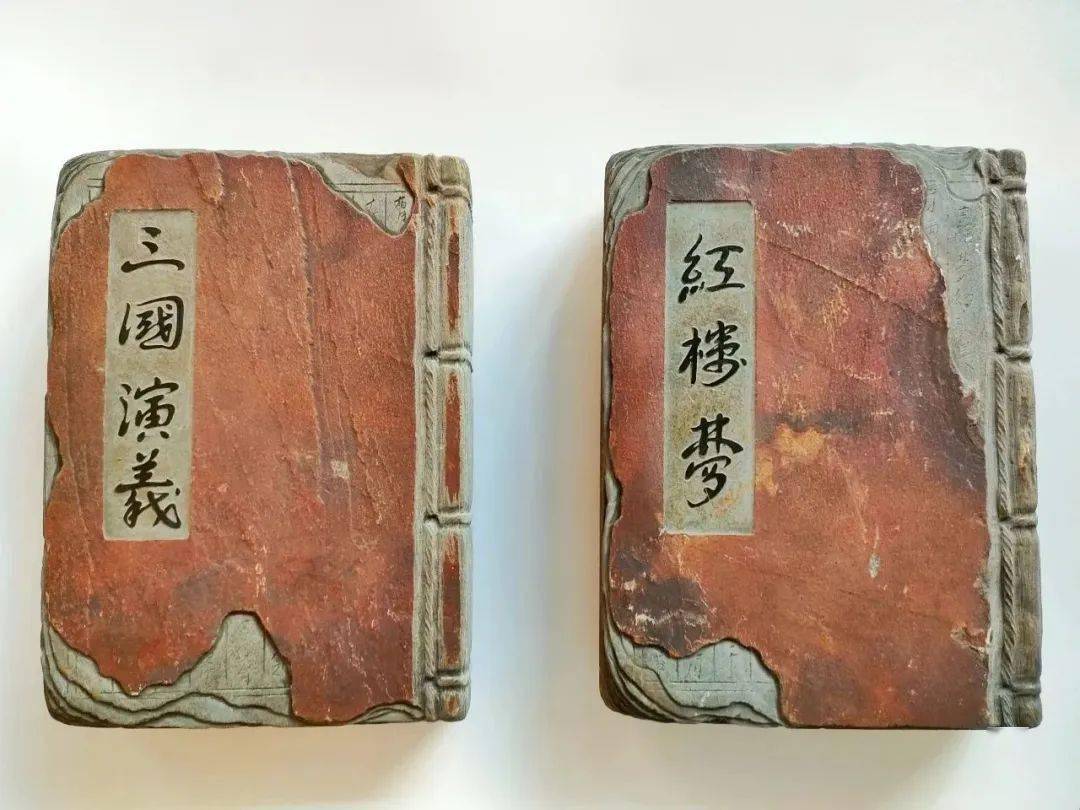 三國演義
紅楼夢